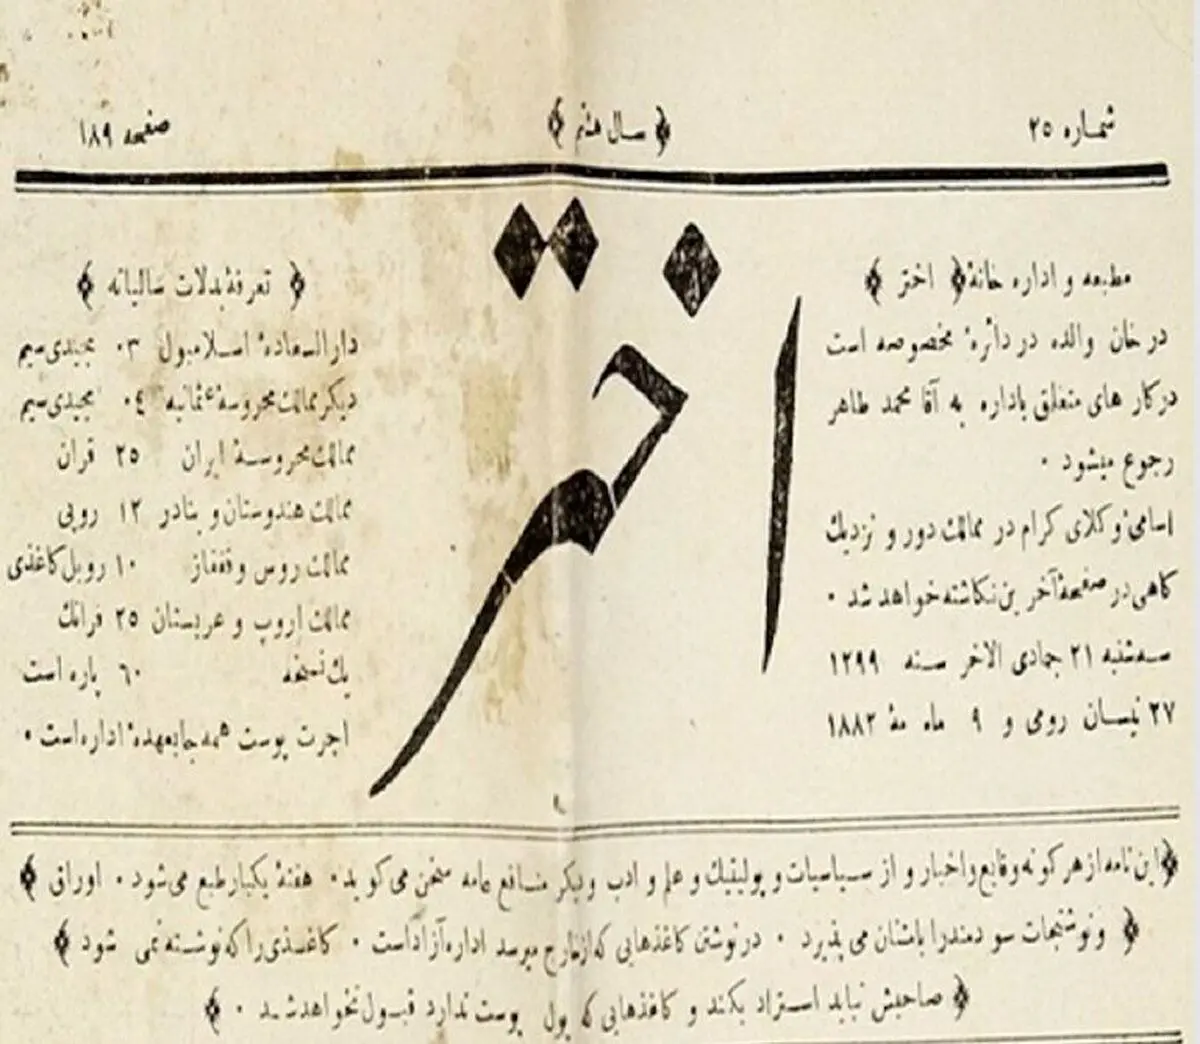 شماره ۲۵
﴿ سال هشتم ﴾
صفحه ۱۸۹
اختر
مطبعه و اداره خانهٔ ﴿ اختر ﴾
در خان والده در دائرهٔ مخصوصه است
در کار های متعلق باداره به آقا محمد طاهر
رجوع میشود ۰
اسامیٔ وکلای کرام در ممالک دور و نزدیک
کاهی در صفحهٔ آخرین نکاشته خواهد شد ۰
سه‌شنبه ۲۱ جمادی الاخر سنه ۱۲۹۹
۲۷ نیسان رومی و ۹ ماه مهٔ ۱۸۸۲
﴿ تعرفهٔ بدلات سالیانه ﴾
دار السعادهٔ اسلامبول ۰۳ مجیدی سیم
دیکر ممالک محروسهٔ عثمانیه ۰٤ مجیدی سیم
ممالک محروسهٔ ایران ۲۵ قران
ممالک هندوستان و بنادر ۱۲ روپی
ممالک روس و قفقاز ۱۰ روبل کاغذی
ممالک اروپ و عربستان ۲۵ فرانک
یک نسخه ۶۰ پاره است
اجرت پوست همه جا بعهدهٔ اداره است ۰
﴿ این نامه از هر کونه وقایع و اخبار و از سیاسیات و پولیتیک و علم و ادب و دیکر منافع عامه سخن می کوید ۰ هفتهٔ یکبار طبع می شود ۰ اوراق ﴾
﴿ و نوشتجات سودمند را بامتنان می پذیرد ۰ در نوشتن کاغذهایی که از خارج میرسد اداره آزاد است ۰ کاغذی را که نوشته نمی شود ﴾
﴿ صاحبش نباید استرداد بکند و کاغذهایی که پول پوست ندارد قبول نخواهد شد ۰ ﴾